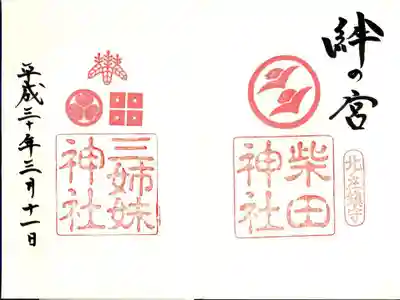 絆の宮
北の庄鎮守
柴田
神社
三姉妹
神社
平成三十年三月十一日